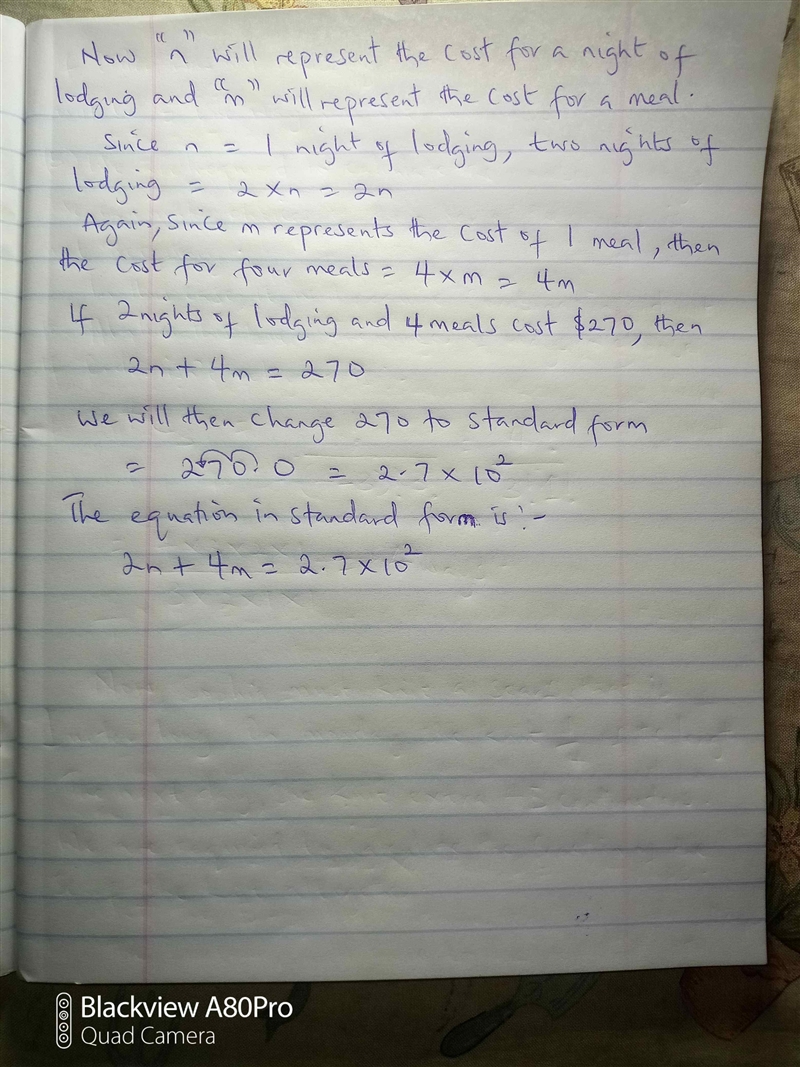 Now "n" will represent the cost for a night of
lodging and "m" will represent the cost for a meal.
Since n = 1 night of lodging, two nights of
lodging = 2 × n = 2n
Again, since m represents the cost of 1 meal, then
the cost for four meals = 4 × m = 4m
If 2 nights of lodging and 4 meals cost $270, then
2n + 4m = 270
We will then change 270 to standard form
= 270.0 = 2.7 × 10²
The equation in standard form is:-
2n + 4m = 2.7 × 10²
Blackview A80Pro
Quad Camera